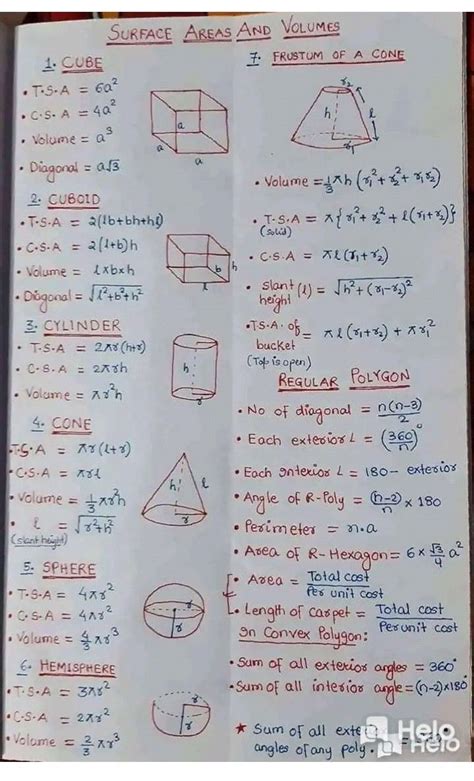 SURFACE AREAS AND VOLUMES
1. CUBE
• T.S.A = 6a²
• C.S.A = 4a²
• Volume = a³
• Diagonal = a√3
a
a
a
2. CUBOID
• T.S.A = 2(lb+bh+hl)
• C.S.A = 2(l+b)h
• Volume = l×b×h
• Diagonal = √l²+b²+h²
b
h
l
3. CYLINDER
• T.S.A = 2πr(h+r)
• C.S.A = 2πrh
• Volume = πr²h
h
r
4. CONE
• T.S.A = πr(l+r)
• C.S.A = πrl
• Volume = 1/3 πr²h
• l = √r²+h²
(slant height)
h
l
r
5. SPHERE
• T.S.A = 4πr²
• C.S.A = 4πr²
• Volume = 4/3 πr³
r
6. HEMISPHERE
• T.S.A = 3πr²
• C.S.A = 2πr²
• Volume = 2/3 πr³
r
7. FRUSTUM OF A CONE
r₂
h
l
r₁
• Volume = 1/3 πh (r₁²+r₂²+r₁r₂)
• T.S.A = π{r₁²+r₂²+l(r₁+r₂)}
(solid)
• C.S.A = πl(r₁+r₂)
• slant height (l) = √h²+(r₁-r₂)²
• TSA. of bucket = πl(r₁+r₂) + πr₁²
(Top is open)
REGULAR POLYGON
• No of diagonal = n(n-3)/2
• Each exterior L = (360/n)°
• Each Interior L = 180 - exterior
• Angle of R-Poly = (n-2)/n × 180
• Perimeter = n.a
• Area of R-Hexagon = 6 × √3/4 a²
• Area = Total cost/Per unit cost
• Length of carpet = Total cost/Per unit cost
In Convex Polygon:
• Sum of all exterior angles = 360°
• Sum of all interior angle = (n-2)×180°
★ Sum of all
angles of any poly.
Helo
Helo